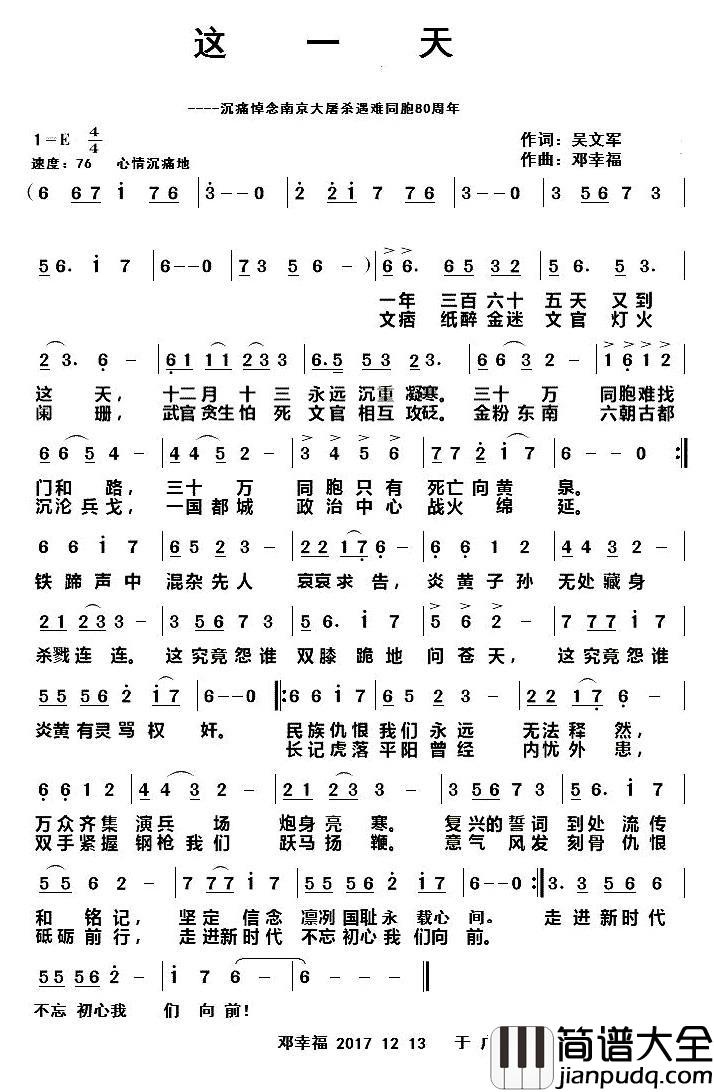 这 一 天
----沉痛悼念南京大屠杀遇难同胞80周年
1=E 4/4
作词：吴文军
速度：76 心情沉痛地
作曲：邓幸福
(6 67 i 76 | 3--0 | 2 2i 7 76 | 3--0 | 3 567 3 |
56. i 7 | 6--0 | 73 56 -) 66. 65 32 | 56. 53. |
一年 三百六十 五天 又到
文痞 纸醉金迷 文官 灯火
23. 6 - | 611 1233 | 6.5 53 23. | 663 2- | 1612 |
这 天， 十二月 十三 永远沉重凝寒。 三十 万 同胞难找
阑 珊， 武官贪生怕 死 文官相互攻砭。 金粉东南 六朝古都
665 4- | 445 2- | 3 4 5 6 | 77 2 i 7 | 6--0 :||
门和 路， 三十 万 同胞只有 死亡向黄 泉。
沉沦兵戈， 一国都城 政治中心 战火 绵 延。
6 6 i 7 | 6523 - | 22176 - | 6612 | 4432 - |
铁蹄声中 混杂先人 哀哀求告， 炎黄子孙 无处藏身
21 233 - | 3 567 3 | 56. i 7 | 652 - | 7 77 i 7 |
杀戮连连。 这究竟怨谁 双膝 跪地 问苍天， 这究竟怨谁
55 56 2 i7 | 6--0 ||: 66 i7 | 6 523 - | 22 i7 6 - |
炎黄有灵骂 权 奸。 民族仇恨我们永远 无法释 然，
长记虎落平阳曾经 内忧外 患，
6 612 | 443 2- | 5 532 - | 3 567 3 | 56. i 7 |
万众齐集 演兵 场 炮身亮寒。 复兴的誓词 到处 流传
双手紧握 钢枪我们 跃马扬 鞭。 意气 风发 刻骨 仇恨
55 6 2 - | 7 77 i 7 | 55 56 2 i7 | 6--0 :|| 3. 3 56 6 |
和 铭记， 坚定 信念 凛冽国耻永 载心 间。 走进新时代
砥砺前行， 走进新时代 不忘初心我 们向 前。
55 56 2 - | i 7 6 - | 6 - - - ||
不忘 初心我 们 向 前！
邓幸福 2017 12 13 于
简谱大全
jianpudq.com